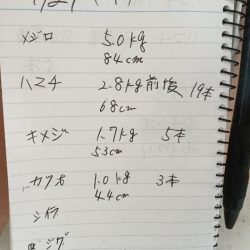 メジロ 5.0kg
84cm
ハマチ 2.8kg前後 19本
68cm
キメジ 1.7kg 5本
53cm
カツオ 1.0kg 3本
44cm
シイラ